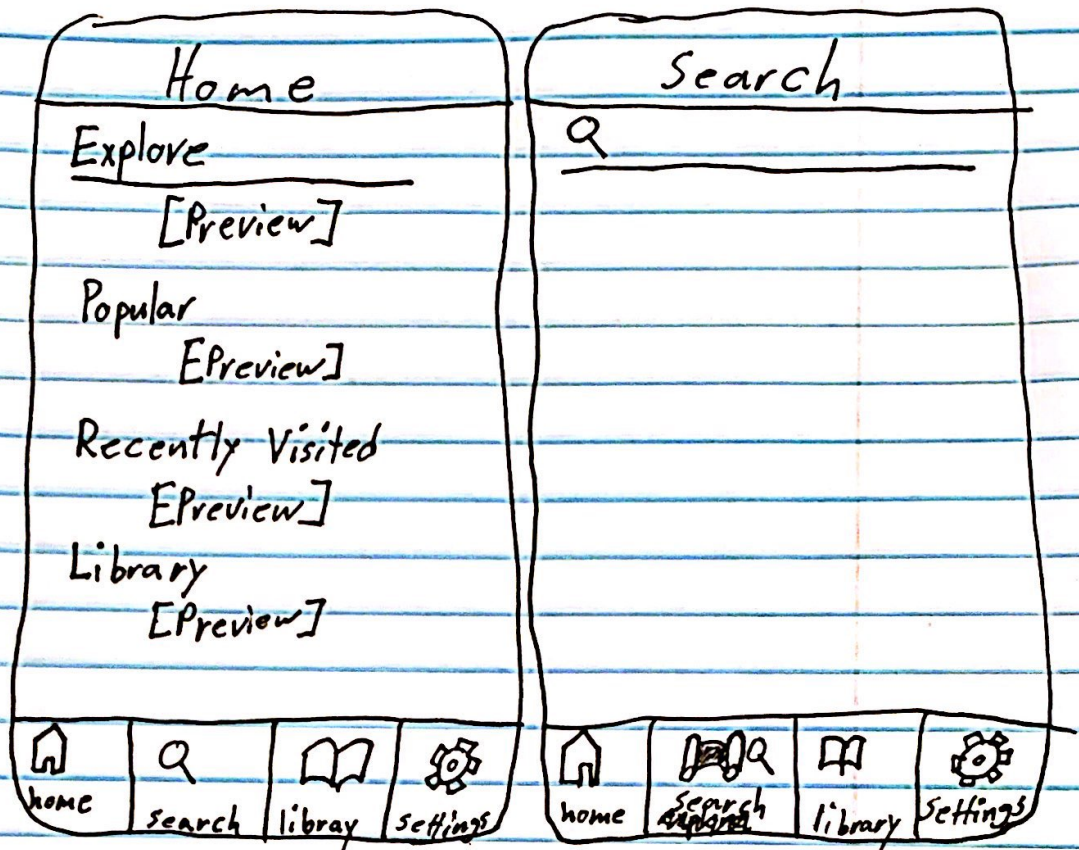 Home
Explore
[Preview]
Popular
[Preview]
Recently Visited
[Preview]
Library
[Preview]
home
search
libray
settings
Search
home
search
library
settings